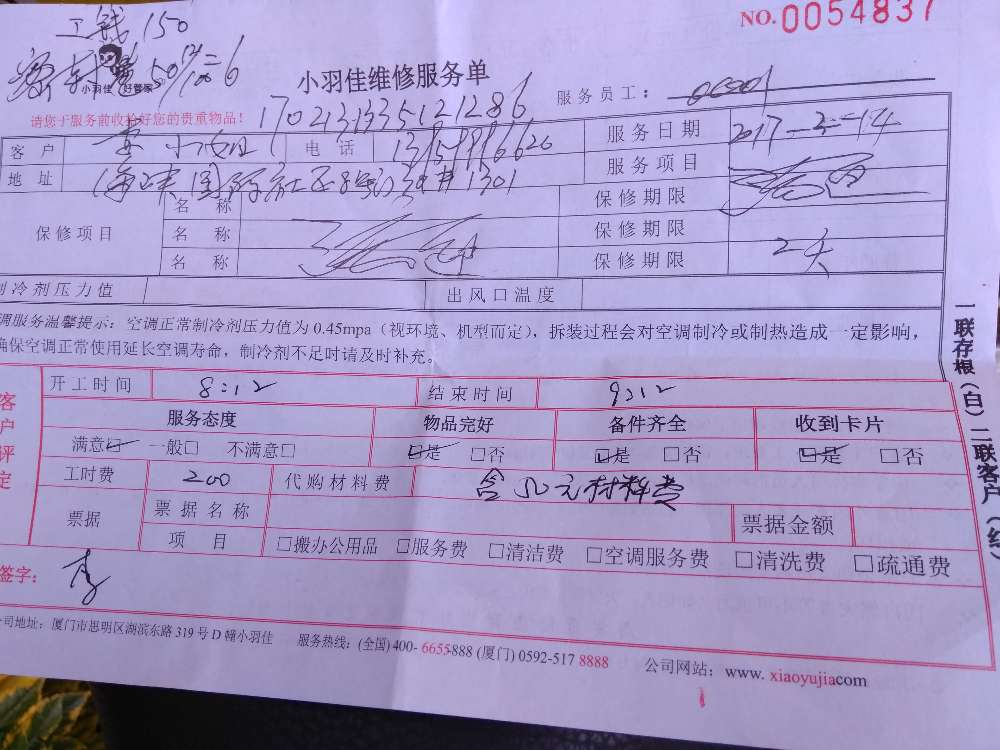 工钱 150
NO.0054837
50 12/100=6
小羽佳 好管家
小羽佳维修服务单
服务员工：
请您于服务前收拾好您的贵重物品！
1702131335121286
客户 小姐 电话 服务日期 2017-2-14
地址 国际社区 1301 服务项目
保修项目 名称 保修期限
名称 保修期限
名称 保修期限 2天
制冷剂压力值 出风口温度
调服务温馨提示：空调正常制冷剂压力值为 0.45mpa（视环境、机型而定），拆装过程会对空调制冷或制热造成一定影响，
确保空调正常使用延长空调寿命，制冷剂不足时请及时补充。
一联存根（白）二联客户（红）
客户评定
开工时间 8:12 结束时间 9:12
服务态度 物品完好 备件齐全 收到卡片
满意☑ 一般□ 不满意□ ☑是 □否 ☑是 □否 ☑是 □否
工时费 200 代购材料费 含50元材料费
票据 票据名称 票据金额
项目 □搬办公用品 □服务费 □清洁费 □空调服务费 □清洗费 □疏通费
签字：
公司地址：厦门市思明区湖滨东路 319 号 D 幢小羽佳 服务热线：(全国) 400- 6655-888 (厦门) 0592-517 8888 公司网站：www. xiaoyujiacom